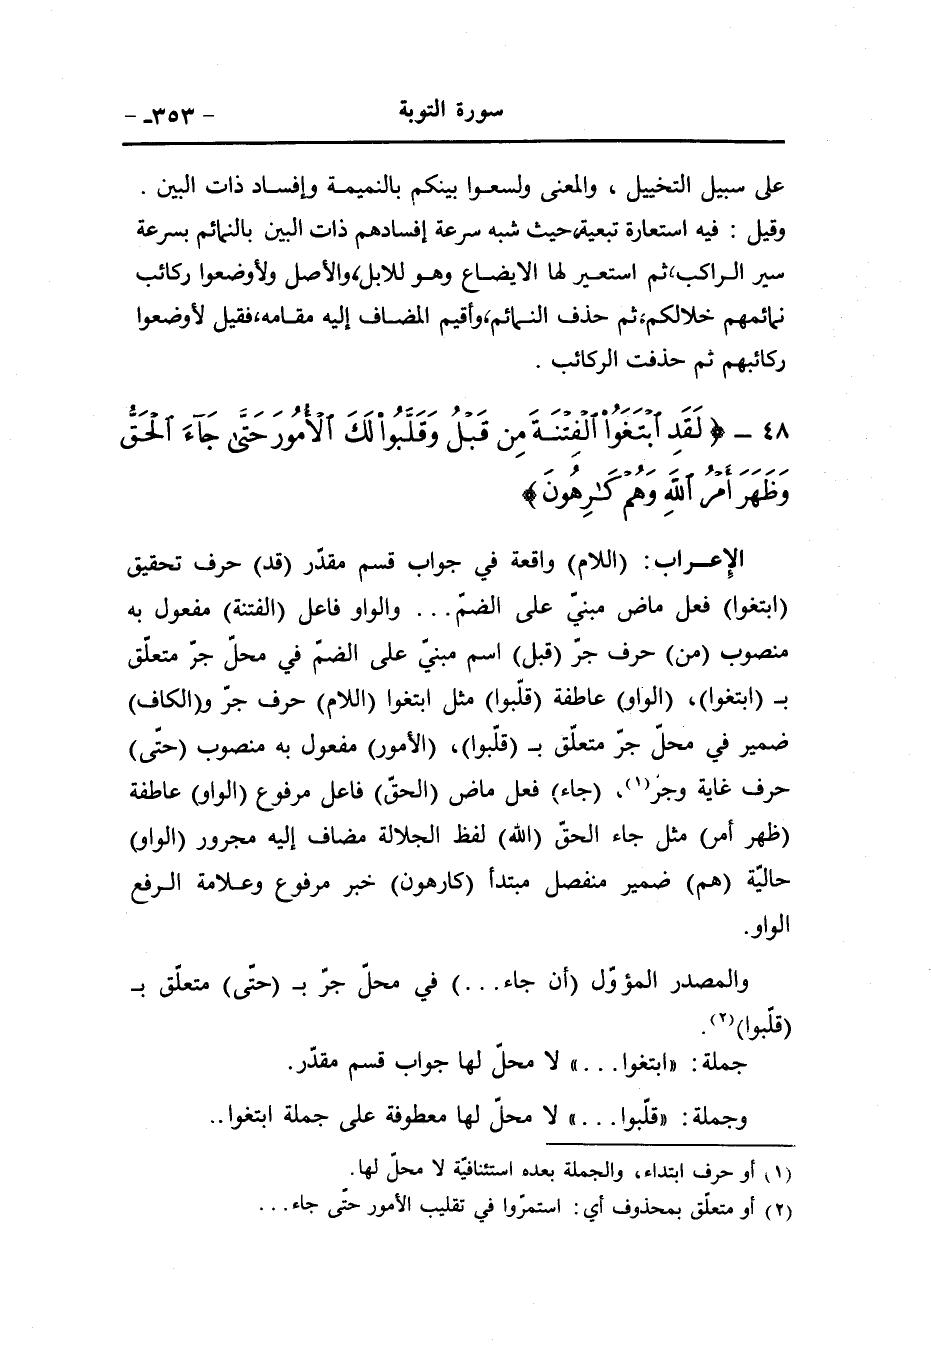 سورة التوبة - ٣٥٣ـ -
على سبيل التخييل ، والمعنى ولسعوا بينكم بالنميمة وإفساد ذات البين .
وقيل : فيه استعارة تبعية،حيث شبه سرعة إفسادهم ذات البين بالنمائم بسرعة
سير الراكب،ثم استعير لها الايضاع وهو للابل،والأصل ولأوضعوا ركائب
نمائمهم خلالكم،ثم حذف النمائم،وأقيم المضاف إليه مقامه،فقيل لأوضعوا
ركائبهم ثم حذفت الركائب .
٤٨ - ﴿ لَقَدِ ٱبْتَغَوُا۟ ٱلْفِتْنَةَ مِن قَبْلُ وَقَلَّبُوا۟ لَكَ ٱلْأُمُورَ حَتَّىٰ جَآءَ ٱلْحَقُّ
وَظَهَرَ أَمْرُ ٱللَّهِ وَهُمْ كَـٰرِهُونَ﴾
الإعراب: (اللام) واقعة في جواب قسم مقدّر (قد) حرف تحقيق
(ابتغوا) فعل ماض مبنيّ على الضمّ... والواو فاعل (الفتنة) مفعول به
منصوب (من) حرف جرّ (قبل) اسم مبنيّ على الضمّ في محلّ جرّ متعلّق
بـ (ابتغوا)، (الواو) عاطفة (قلّبوا) مثل ابتغوا (اللام) حرف جرّ و(الكاف)
ضمير في محلّ جرّ متعلّق بـ (قلّبوا)، (الأمور) مفعول به منصوب (حتّى)
حرف غاية وجرّ(١)، (جاء) فعل ماض (الحقّ) فاعل مرفوع (الواو) عاطفة
(ظهر أمر) مثل جاء الحقّ (الله) لفظ الجلالة مضاف إليه مجرور (الواو)
حاليّة (هم) ضمير منفصل مبتدأ (كارهون) خبر مرفوع وعلامة الرفع
الواو.
والمصدر المؤوّل (أن جاء...) في محلّ جرّ بـ (حتّى) متعلّق بـ
(قلّبوا)(٢).
جملة: «ابتغوا...» لا محلّ لها جواب قسم مقدّر.
وجملة: «قلّبوا...» لا محلّ لها معطوفة على جملة ابتغوا..
(١) أو حرف ابتداء، والجملة بعده استئنافيّة لا محلّ لها.
(٢) أو متعلّق بمحذوف أي: استمرّوا في تقليب الأمور حتّى جاء...